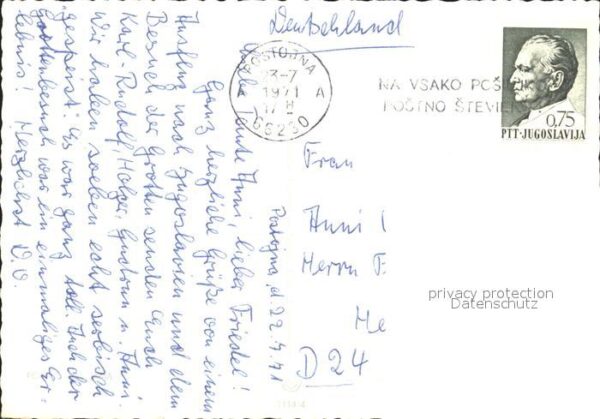 Postojna, d 22.7.71
Liebe Tante Anni, lieber Friedel!
Ganz herzliche Grüße von einem
Ausflug nach Jugoslawien und dem
Besuch der Grotten senden Euch
Karl-Rudolf, Holger, Gudrun u. Anni
Wir haben soeben echt serbisch
gespeist. Es war ganz toll. Auch der
Grottenbesuch war ein einmaliges Er-
lebnis! Herzlichst D.O.
Deutschland
POSTOJNA
23-7
1971
A
17 H
66230
NA VSAKO POŠ
POŠTNO ŠTEVIL
0,75
PTT-JUGOSLAVIJA
Frau
Anni
Herrn F
He
D 24
privacy protection
Datenschutz